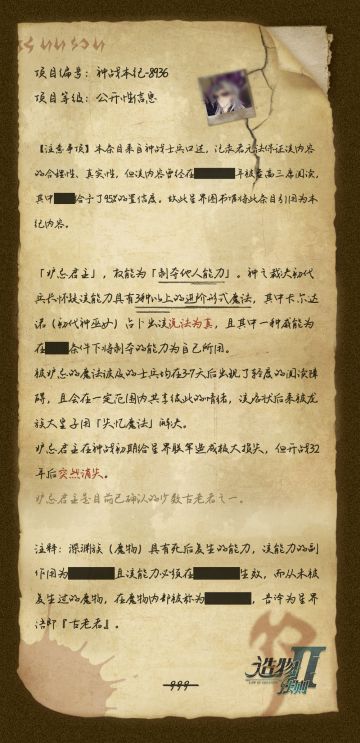 项目编号：神战本纪-8936
项目等级：公开性信息
【注意事项】本条目来自神战士兵口述，记录者无法保证该内容
的合理性、真实性，但该内容曾经在
年被查高三席阅演，
其中
给予了95%的置信度。故此星界图书馆将此条目引用为本
纪内容。
「妒忌君主」，权能为「制夺他人能力」。神之裁决初代
兵长怀疑该能力具有3种以上的进阶形式魔法，其中卡尔达
诺（初代神巫女）占卜出该说法为真，且其中一种威能为
在
条件下将制夺的能力为自己所用。
被妒忌的魔法波及的士兵均在3-7天后出现了轻度的阅演障
碍，且会在一定范围内共享彼此的情绪，该症状后来被龙
族大皇子用『失忆魔法』解决。
妒忌君主在神战初期给星界联军造成极大损失，但开战32
年后突然消失。
妒忌君主是目前已确认的少数古老者之一。
注释：深渊族（魔物）具有死后复生的能力，该能力的副
作用为
且该能力必须在
生效，而从未被
复生过的魔物，在魔物内部被称为
，吾译为星界
语即『古老者』。
999
造物法则II